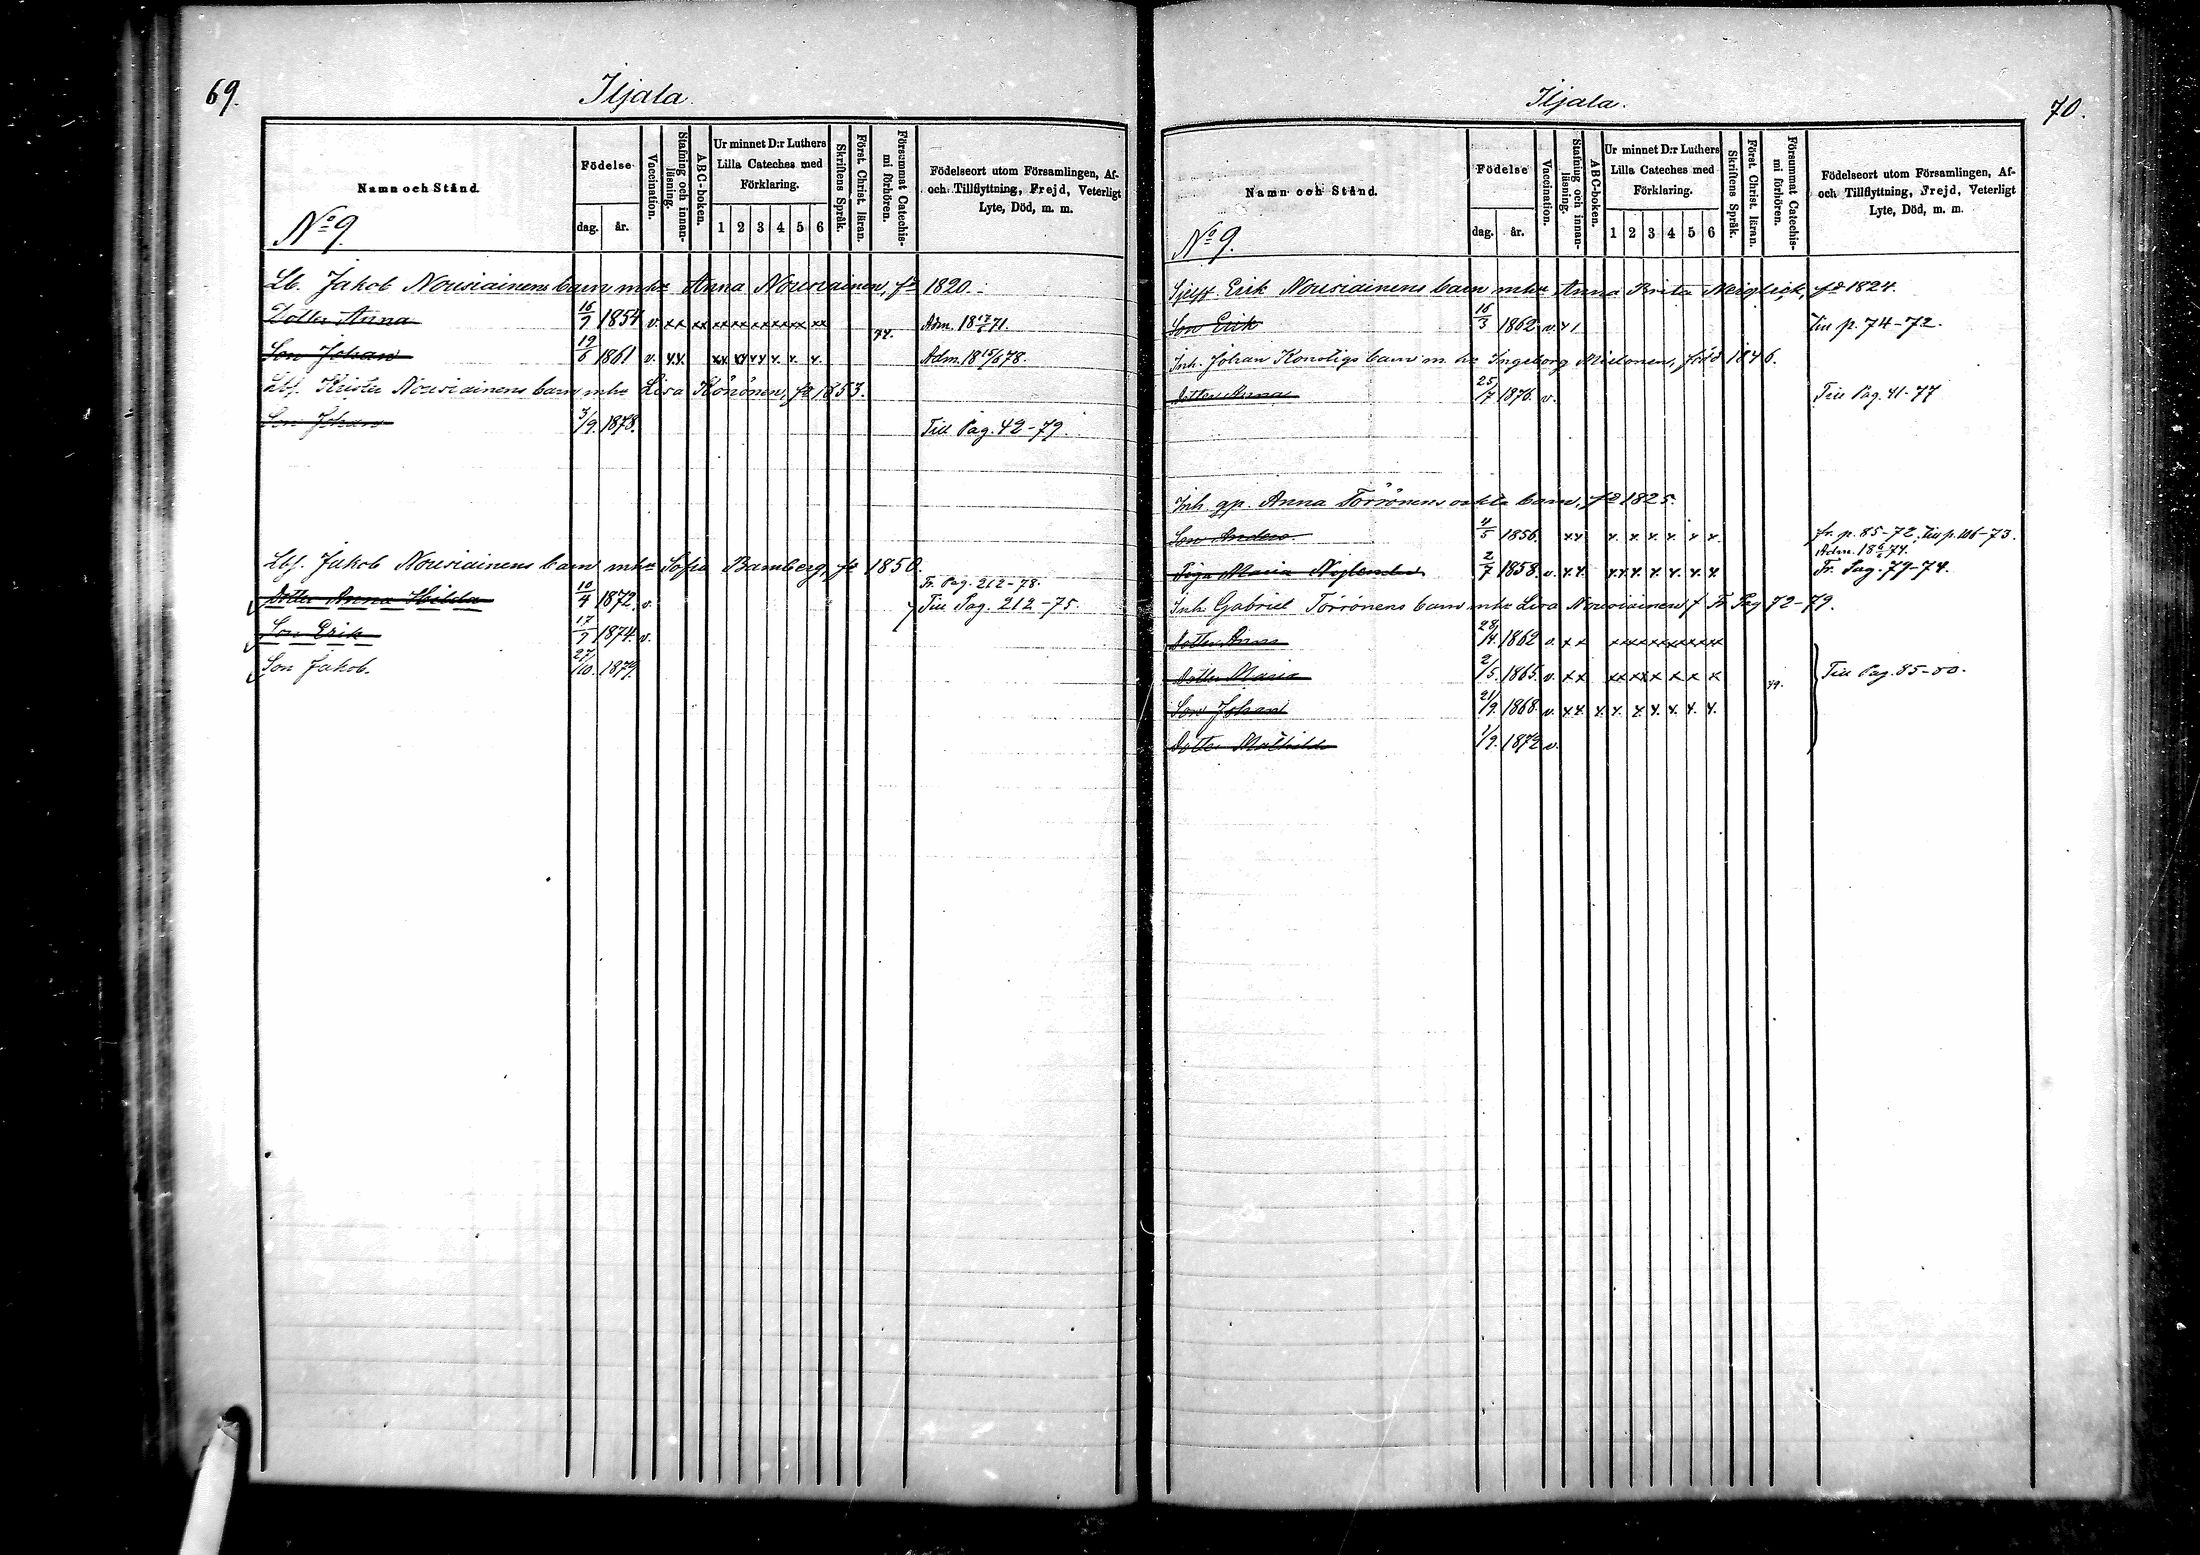 69.
Iljala.
Namn och Stånd.
Födelse
dag.
år.
Vaccination.
Stafning och innanläsning.
ABC-boken.
Ur minnet D:r Luthers
Lilla Cateches med
Förklaring.
1 2 3 4 5 6
Skriftens Språk.
Först. Christ. läran.
Försummat Catechismi förhören.
Födelseort utom Församlingen, Af-
och Tillflyttning, Frejd, Veterligt
Lyte, Död, m. m.
No 9.
Lb. Jakob Nousiainens barn m hu Anna Nousiainen, fd 1820.
Dotter Anna 16/9 1854 v. xx xx xx xx xx xx xx xx 74. Adm. 18 17/6 71.
Son Johan 19/6 1861 v. xx xx xx xx x. x. x. Adm. 18 15/6 78.
Lbf. Krister Nousiainens barn m hu Lisa Könönen, fd 1853.
Son Johan 3/9. 1878. Till Pag. 42-79.
Lbf. Jakob Nousiainens barn m hu Sofia Bamberg, fd 1850.
Fr. Pag. 212-78.
Dotter Anna Hilda 10/4 1872. v. Till Pag. 212-75.
Son Erik 17/9 1874. v.
Son Jakob. 27/10. 1879.
Iljala.
70.
Namn och Stånd.
Födelse
dag.
år.
Vaccination.
Stafning och innanläsning.
ABC-boken.
Ur minnet D:r Luthers
Lilla Cateches med
Förklaring.
1 2 3 4 5 6
Skriftens Språk.
Först. Christ. läran.
Försummat Catechismi förhören.
Födelseort utom Församlingen, Af-
och Tillflyttning, Frejd, Veterligt
Lyte, Död, m. m.
No 9.
Erik Nousiainens barn m hu Anna Brita Neiglick, fd 1824.
Son Erik 16/3 1862 v. x 1 Till p. 74-72.
Inh. Johan Konoligs barn m. hu Ingeborg Mielonen, född 1846.
Dotter Anna 25/7 1876. v. Till Pag. 41-77
Inh. gp. Anna Törrönens oäkta barn, fd 1825.
Son Anders 4/5 1856. xx x. x. x. x. x. x. fr. p. 85-72. Till p. 116-73.
Adm. 18 74.
Piga Maria 2/7 1858. v. x x. x x x. x. x. x. x. Fr. Pag. 79-74.
Inh. Gabriel Törrönens barn m hu Lisa Nousiainen, f Fr Pag 72-79.
Dotter Anna 28/4. 1862 v. x x xx xx xx xx xx xx
Dotter Maria 2/5. 1865. v. x x xx xx x x x x 79. Till Pag. 85-80.
Son Johan 21/9. 1868. v. x x. x. x. x. x. x. x. x.
Dotter Mathilda 1/9. 1872 v.